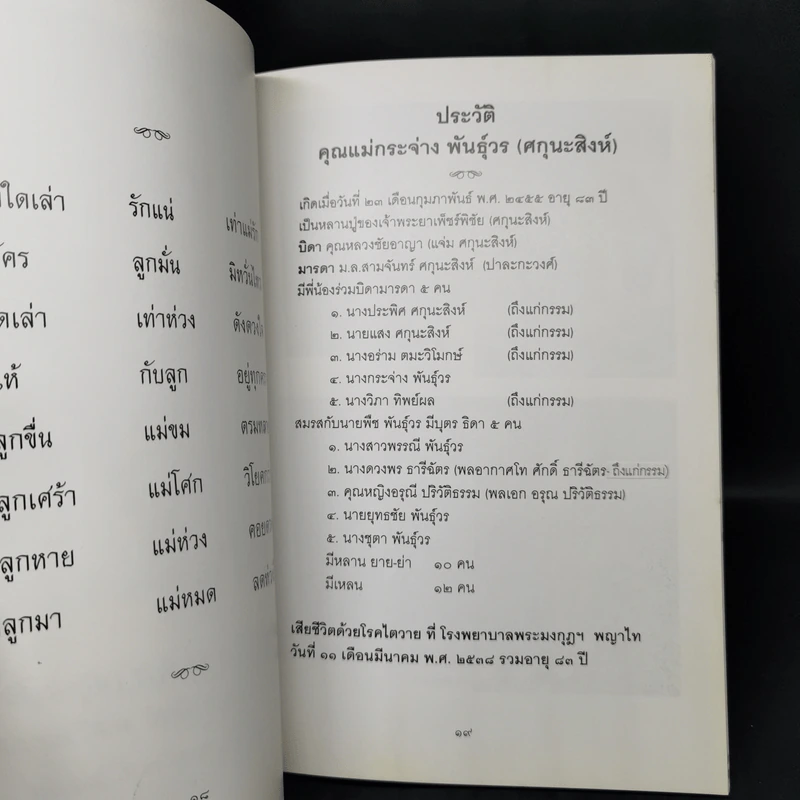 ใดเล่า รักแน่ เท่าแม่รัก
ใคร ลูกมั่น มิหวั่นไหว
ดเล่า เท่าห่วง ดังดวงใจ
ห้ กับลูก อยู่ทุก
ลูกขื่น แม่ขม ตรม
ลูกเศร้า แม่โศก วิโยค
ลูกหาย แม่ห่วง คอย
ลูกมา แม่หมด ลด
๑๘
ประวัติ
คุณแม่กระจ่าง พันธุ์วร (ศกุนะสิงห์)
เกิดเมื่อวันที่ ๒๓ เดือนกุมภาพันธ์ พ.ศ. ๒๔๕๕ อายุ ๘๓ ปี
เป็นหลานปู่ของเจ้าพระยาเพ็ชร์พิชัย (ศกุนะสิงห์)
บิดา คุณหลวงชัยอาญา (แจ่ม ศกุนะสิงห์)
มารดา ม.ล.สามจันทร์ ศกุนะสิงห์ (ปาละกะวงศ์)
มีพี่น้องร่วมบิดามารดา ๕ คน
๑. นางประพิศ ศกุนะสิงห์ (ถึงแก่กรรม)
๒. นายแสง ศกุนะสิงห์ (ถึงแก่กรรม)
๓. นางอร่าม ตมะวิโมกษ์ (ถึงแก่กรรม)
๔. นางกระจ่าง พันธุ์วร
๕. นางวิภา ทิพย์ผล (ถึงแก่กรรม)
สมรสกับนายพืช พันธุ์วร มีบุตร ธิดา ๕ คน
๑. นางสาวพรรณี พันธุ์วร
๒. นางดวงพร ธารีฉัตร (พลอากาศโท ศักดิ์ ธารีฉัตร- ถึงแก่กรรม)
๓. คุณหญิงอรุณี ปริวัติธรรม (พลเอก อรุณ ปริวัติธรรม)
๔. นายยุทธชัย พันธุ์วร
๕. นางชุตา พันธุ์วร
มีหลาน ยาย-ย่า ๑๐ คน
มีเหลน ๑๒ คน
เสียชีวิตด้วยโรคไตวาย ที่ โรงพยาบาลพระมงกุฎฯ พญาไท
วันที่ ๑๑ เดือนมีนาคม พ.ศ. ๒๕๓๘ รวมอายุ ๘๓ ปี
๑๙